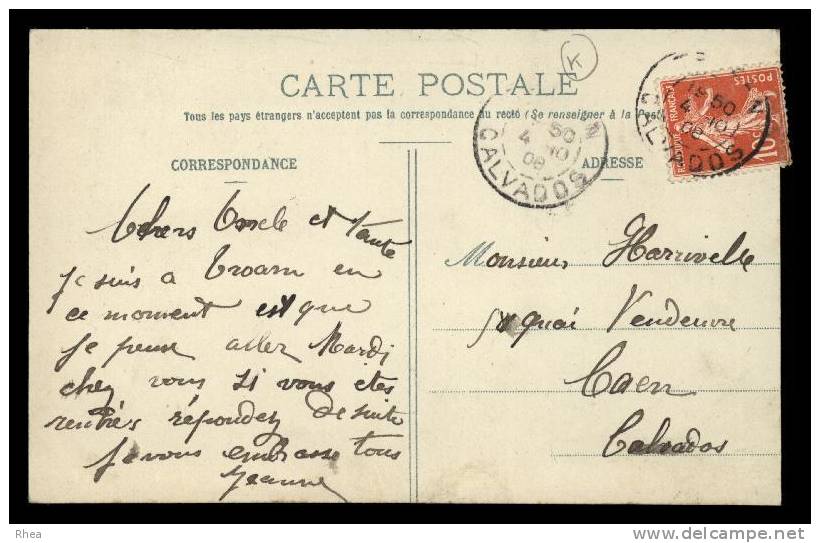 K
CARTE POSTALE
Tous les pays étrangers n'acceptent pas la correspondance au recto (Se renseigner à la Poste)
CORRESPONDANCE
ADRESSE
50
4
08
CALVADOS
50
4
08
CALVADOS
POSTES
10
Chers Oncle et Tante
Je suis a Troarn en
ce moment est que
je peux aller Mardi
chez vous si vous etes
rentrés répondez de suite
Je vous embrasse tous
Jeanne
Monsieur Harrivelle
quai Vendeuvre
Caen
Calvados
Rhea
delcampe.net